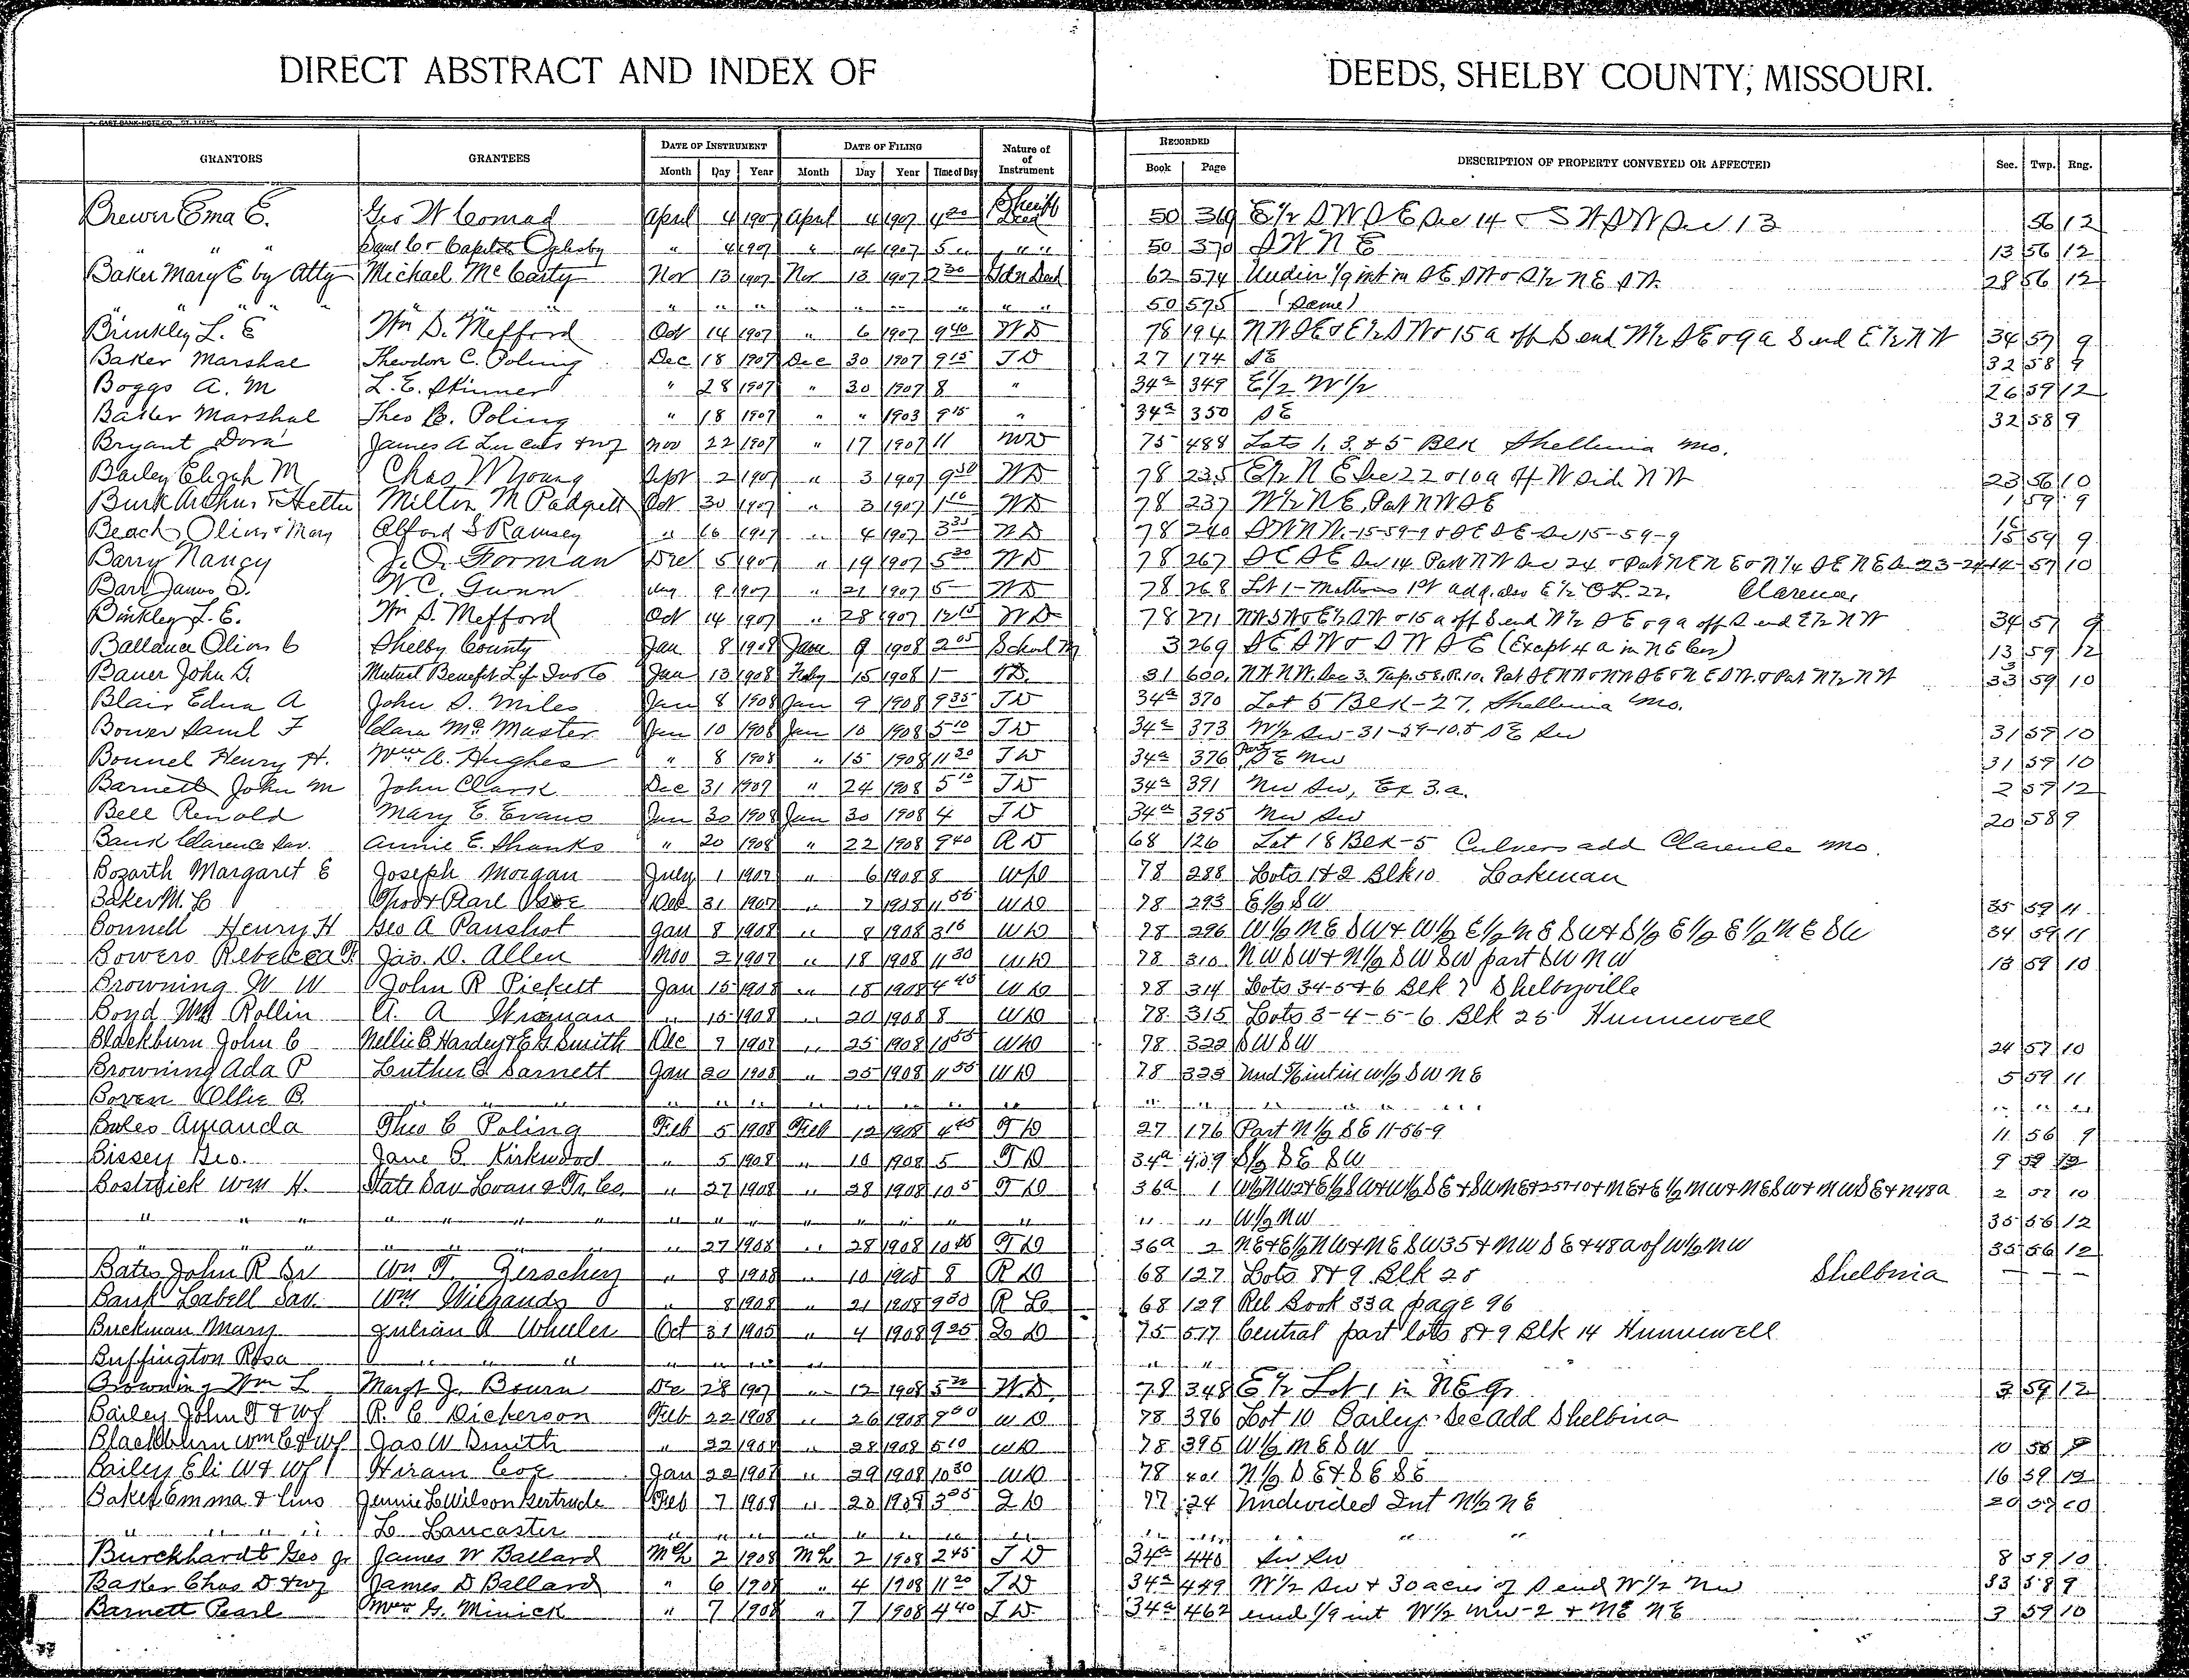 DIRECT ABSTRACT AND INDEX OF DEEDS, SHELBY COUNTY, MISSOURI.
GRANTORS GRANTEES DATE OF INSTRUMENT DATE OF FILING Nature of Instrument RECORDED DESCRIPTION OF PROPERTY CONVEYED OR AFFECTED Sec. Twp. Rng.
Month Day Year Month Day Year Time of Day Book Page
Brewer Ema E. Geo W Conrad April 4 1907 April 4 1907 4 20 Sheriff Deed 50 369 E 1/2 S W S E Sec 14 & S W S W Sec 13 56 12
" " " Saml C & Capitola Oglesby " 4 1907 " 14 1907 5 " " 50 370 S W N E 13 56 12
Baker Mary E by Atty Michael McCarty Nov 13 1907 Nov 13 1907 2 30 Gdn Deed 62 574 Undiv 1/9 int in S E S W & S 1/2 N E S W 28 56 12
" " " " " " " " " " " " " 50 575 (Same)
Brinkley L. E Wm S. Mefford Oct 14 1907 " 6 1907 9 40 W D 78 194 N W S E & E 1/2 S W & 15 a off S end W 1/2 S E & 9 a S end E 1/2 N W 34 57 9
Baker Marshal Theodore C. Poling Dec 18 1907 Dec 30 1907 9 15 T D 27 174 S E 32 58 9
Boggs A. M L. E. Skinner " 28 1907 " 30 1907 8 " 34a 349 E 1/2 W 1/2 26 59 12
Baker Marshal Theo C. Poling " 18 1907 " " 1903 9 15 " 34a 350 S E 32 58 9
Bryant Dora James A Lucas & wf Nov 22 1907 " 17 1907 11 W D 75 488 Lots 1, 3, & 5 Blk Shelbina Mo.
Bailey Elijah M Chas W Young Sept 2 1907 " 3 1907 9 30 W D 78 235 E 1/2 N E Sec 22 & 10 a off W side N W 23 56 10
Burk Arthur & Hettie Milton M Padgett Oct 30 1907 " 3 1907 1 10 W D 78 237 W 1/2 N E, Part N W S E 1 59 9
Beach Oliver & Mary Alford S Ramsey " 16 1907 " 4 1907 3 35 W D 78 240 S W N W-15-59-9 & S E S E Sec 15-59-9 15 59 9
Barry Nancy J. O. Forman Dec 5 1907 " 19 1907 5 30 W D 78 267 S E S E Sec 14 Part N W Sec 24 & Part N E N E & N 1/4 S E N E Sec 23-24-14 57 10
Barr James S. W. C. Gunn Aug 9 1907 " 21 1907 5 W D 78 268 Lot 1 1st add. also E 1/2 O L. 22. Clarence
Binkley L. E. Wm S. Mefford Oct 14 1907 " 28 1907 12 15 W D 78 271 N W S W & E 1/2 S W & 15 a off S end W 1/2 S E & 9 a off S end E 1/2 N W 34 57 9
Oliver C Shelby County Jan 8 1908 Jan 9 1908 2 05 School M 3 269 S E S W & S W S E (Except 4 a in N E Cor) 13 59 12
Bauer John G. Mutual Benefit Life Ins Co Jan 13 1908 Feby 15 1908 1 T D. 31 600 N W N W. Sec 3. Twp. 58. R. 10. Part S E N W & N W S E & N E S W. & Part N 1/2 N W 33 59 10
Blair Edna A John S. Miles Jan 8 1908 Jan 9 1908 9 35 T D 34a 370 Lot 5 Blk-27, Shelbina Mo.
Bower Saml F Clara McMaster Jan 10 1908 Jan 10 1908 5 10 T D 34a 373 W 1/2 Sw-31-59-10 & S E Sw 31 59 10
Bonnel Henry H. Wm A. Hughes " 8 1908 " 15 1908 11 30 T D 34a 376 Part S E Nw 31 59 10
Barnett John M John Clark Dec 31 1907 " 24 1908 5 10 T D 34a 391 Nw Sw, Ex 3. a. 2 57 12
Bell Renold Mary E. Evans Jan 30 1908 Jan 30 1908 4 T D 34a 395 Nw Sw 20 58 9
Bank Clarence Sav. Annie E. Shanks " 20 1908 " 22 1908 9 40 R D 68 126 Lot 18 Blk-5 Culvers add Clarence Mo.
Bozarth Margaret E Joseph Morgan July 1 1907 " 6 1908 8 W D 78 288 Lots 1 & 2 Blk 10 Lakenan
Baker M. L Pearl Oct 31 1907 " 7 1908 11 55 W D 78 293 E 1/2 S W 35 59 11
Bonnell Henry H Geo A Panshot Jan 8 1908 " 8 1908 3 15 W D 78 296 W 1/2 N E S W & W 1/2 E 1/2 N E S W & S 1/2 E 1/2 E 1/2 N E S W 34 59 11
Bowers Rebecca F Jas. D. Allen Nov 2 1907 " 18 1908 11 30 W D 78 310 N W S W & N 1/2 S W S W part S W N W 18 59 10
Browning W W John R Pickett Jan 15 1908 " 18 1908 4 45 W D 78 314 Lots 3 4-5 & 6 Blk 7 Shelbyville
Boyd Wm Rollin A. A " 15 1908 " 20 1908 8 W D 78 315 Lots 3-4-5-6 Blk 25 Hunnewell
Blackburn John C Nellie B Hardey & E G Smith Dec 7 1907 " 25 1908 10 55 W D 78 322 S W S W 24 57 10
Browning Ada P Luther C Barnett Jan 20 1908 " 25 1908 11 55 W D 78 323 Und int in W 1/2 S W N E 5 59 11
Boren Ollie B. " " " " " " " " " " " " " " " " " "
Bules Amanda Theo C Poling Feb 5 1908 Feb 12 1908 4 45 T D 27 176 Part N 1/2 S E 11-56-9 11 56 9
Bissey Geo. Jane B. Kirkwood " 5 1908 " 10 1908 5 T D 34a 409 S 1/2 S E S W 9 59 12
Bostwick Wm H. State Sav Loan & Tr Co. " 27 1908 " 28 1908 10 5 T D 36a 1 W 1/2 N W 2 & E 1/2 S W & W 1/2 S E & S W N E & 2 57-10 & N E & E 1/2 N W & N E S W & N W S E & N 48 a 2 57 10
" " " " " " " " " " " " " " " W 1/2 N W 35 56 12
" " " " " " " 27 1908 " 28 1908 T D 36a 2 N E & E 1/2 N W & N E S W 35 & N W S E & 48 a of W 1/2 N W 35 56 12
Bates John R Sr Wm F. Gerschez " 8 1908 " 10 1908 8 R D 68 127 Lots 8 & 9 Blk 28 Shelbina
Bank Labell Sav. Wm Wiegands " 8 1908 " 21 1908 9 30 R D 68 129 Rel Book 33a page 96
Buckman Mary Julian A Wheeler Oct 31 1905 " 4 1908 9 25 2 D 75 517 Central part lots 8 & 9 Blk 14 Hunnewell
Buffington Rosa " " " " " " " " "
Browning Wm L Margt J. Bourn Dec 28 1907 " 12 1908 5 20 W. D. 78 348 E 1/2 Lot 1 in N E Qr 3 59 12
Bailey John T & Wf R. C Dickerson Feb 22 1908 " 26 1908 9 00 W D 78 386 Lot 10 Bailey's Sec Add Shelbina
Blackburn Wm C & Wf Jas W Smith " 22 1908 " 28 1908 5 10 W D 78 395 W 1/2 N E S W 10 58 9
Bailey Eli W & Wf Hiram Coe Jan 22 1907 " 29 1908 10 30 W D 78 401 N 1/2 S E & S E S E 16 59 12
Baker Emma & Lino Jennie L Wilson Gertrude Feb 7 1908 " 20 1908 3 05 2 D 77 24 Undivided Int N 1/2 N E 20 59 10
" " " " L. Lancaster " " " " " " " " " " " "
Burckhardt Geo Jr James W Ballard Mch 2 1908 Mch 2 1908 2 45 T D 34a 440 Sw Sw 8 59 10
Baker Chas D & wf James D Ballard " 6 1908 " 4 1908 11 20 T D 34a 449 W 1/2 Sw & 30 acres of S end W 1/2 Nw 33 58 9
Barnett Pearl Wm G. Minick " 7 1908 " 7 1908 4 40 T D 34a 462 und 1/9 int W 1/2 Nw-2 & NE NE 3 59 10